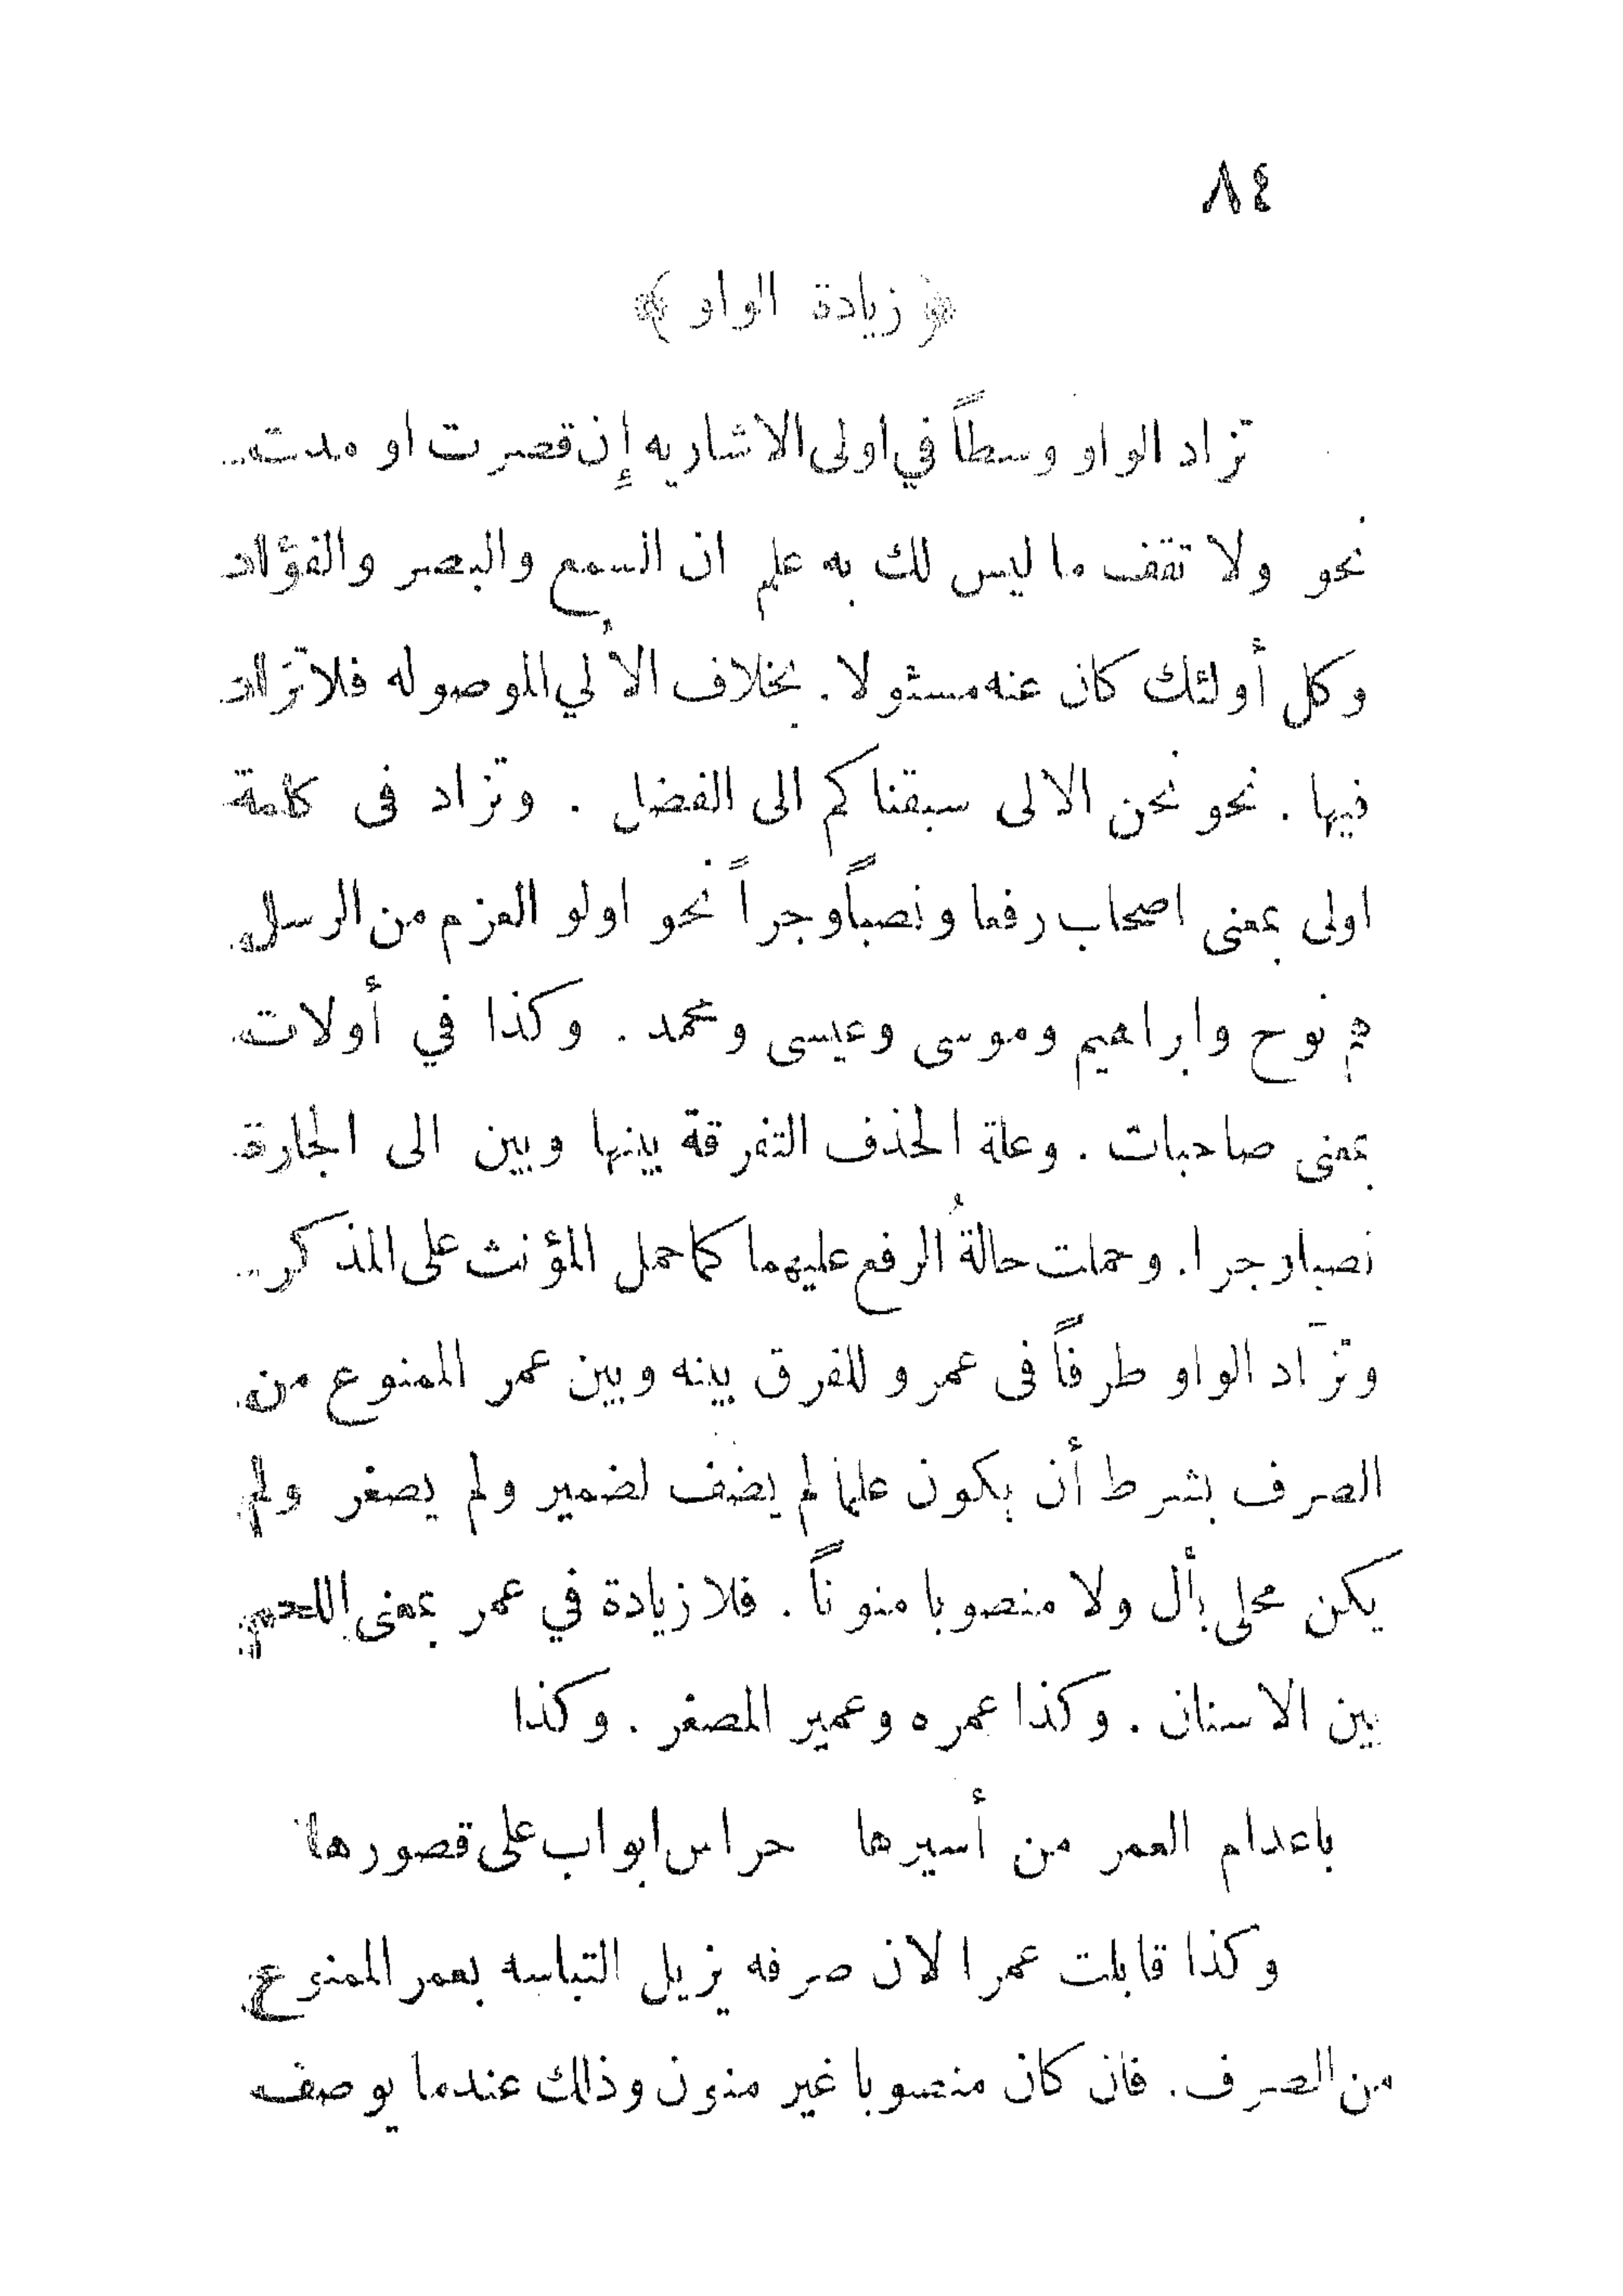 ٨٤
﴿ زيادة الواو ﴾
تزاد الواو وسطاً في اولى الاشاريه إن قصرت او مدت
نحو ولا تقف ما ليس لك به علم ان السمع والبصر والفؤاد
وكل أولئك كان عنه مسئولا. بخلاف الأُلي الموصوله فلا تزاد
فيها . نحو نحن الالى سبقناكم الى الفضل . وتزاد فى كلمة
اولى بمعنى اصحاب رفعا ونصباً وجراً نحو اولو العزم من الرسل
هم نوح وابراهيم وموسى وعيسى ومحمد . وكذا في أولات
بمعنى صاحبات . وعلة الحذف التفرقة بينها وبين الى الجارة
نصبا وجرا. وحملت حالةُ الرفع عليهما كما حمل المؤنث على المذكر
وتزَاد الواو طرفاً فى عمرو للفرق بينه وبين عمر الممنوع من
الصرف بشرط أن يكون علما لم يضف لضمير ولم يصغر ولم
يكن محلى بأل ولا منصوبا منوناً . فلا زيادة في عمر بمعنى اللحم
بين الاسنان . وكذا عمره وعمير المصغر . وكذا
باعدام العمر من أسيرها حراس ابواب على قصورها
وكذا قابلت عمرا لان صرفه يزيل التباسه بعمر الممنوع
من الصرف. فان كان منصوبا غير منون وذلك عندما يوصف